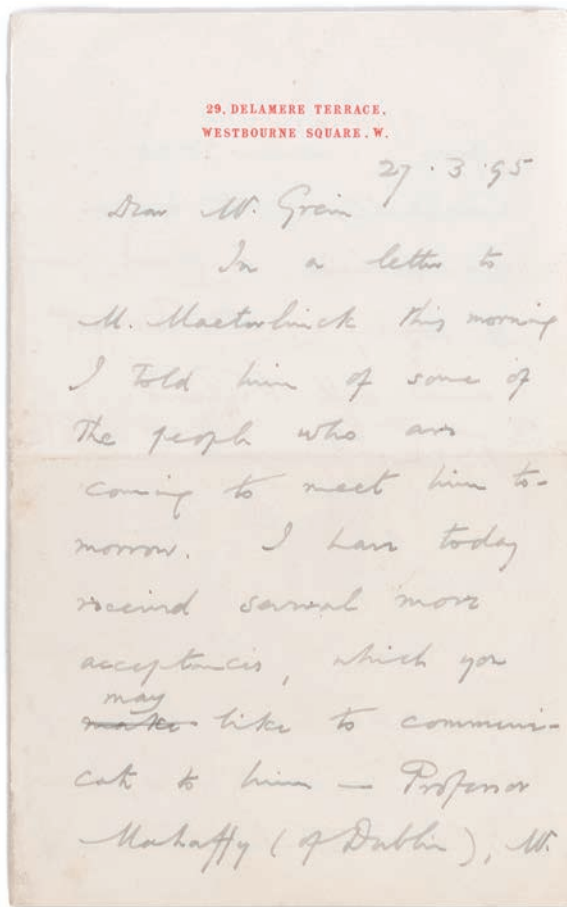 29, DELAMERE TERRACE,
WESTBOURNE SQUARE. W.
27 . 3 . 95
Dear Mr. Grein
In a letter to
M. Maeterlinck this morning
I told him of some of
the people who are
coming to meet him to-
morrow. I have today
received several more
acceptances, which you
may
make like to communi-
cate to him — Professor
Mahaffy (of Dublin), Mr.